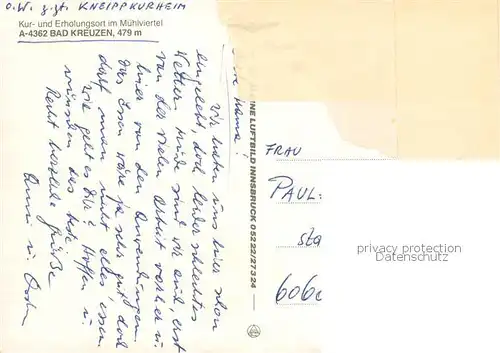 O.W. z.zt. KNEIPPKURHEIM
Kur- und Erholungsort im Mühlviertel
A-4362 BAD KREUZEN, 479 m
Mama!
Wir haben uns hier schon
eingelebt, doch leider schlechtes
Wetter. Müde sind wir auch, erst
von der vielen Arbeit vorher u.
hier von den Anwendungen.
Das Essen wäre ja sehr gut doch
darf man nicht alles essen.
Wie geht es Dir? Hoffen u.
wünschen das beste.
Recht herzliche Grüße
u.
LUFTBILD INNSBRUCK 05222/27324
FRAU
PAUL
Sta
606
privacy protection
Datenschutz